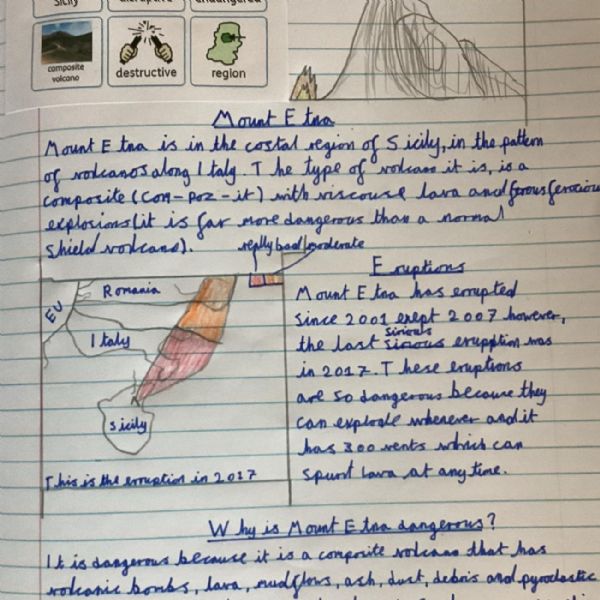 Sicily
disruptive
endangered
composite volcano
destructive
region
Mount Etna
Mount Etna is in the costal region of Sicily, in the pattern
of volcanos along Italy. The type of volcano it is, is a
composite (Com-poz-it) with viscouse lava and ferocious
explosions (it is far more dangerous than a normal
shield volcano).
really bad moderate
EU
Romania
Italy
Sicily
This is the erruption in 2017
Eruptions
Mount Etna has errupted
since 2001 exept 2007 however,
the last sirious erupption was
in 2017. These eruptions
are so dangerous because they
can explode whenever and it
has 300 vents which can
spurt lava at any time.
Why is Mount Etna dangerous?
It is dangerous because it is a composite volcano that has
volcanic bombs, lava, mudflows, ash, dust, debris and pyroclastic